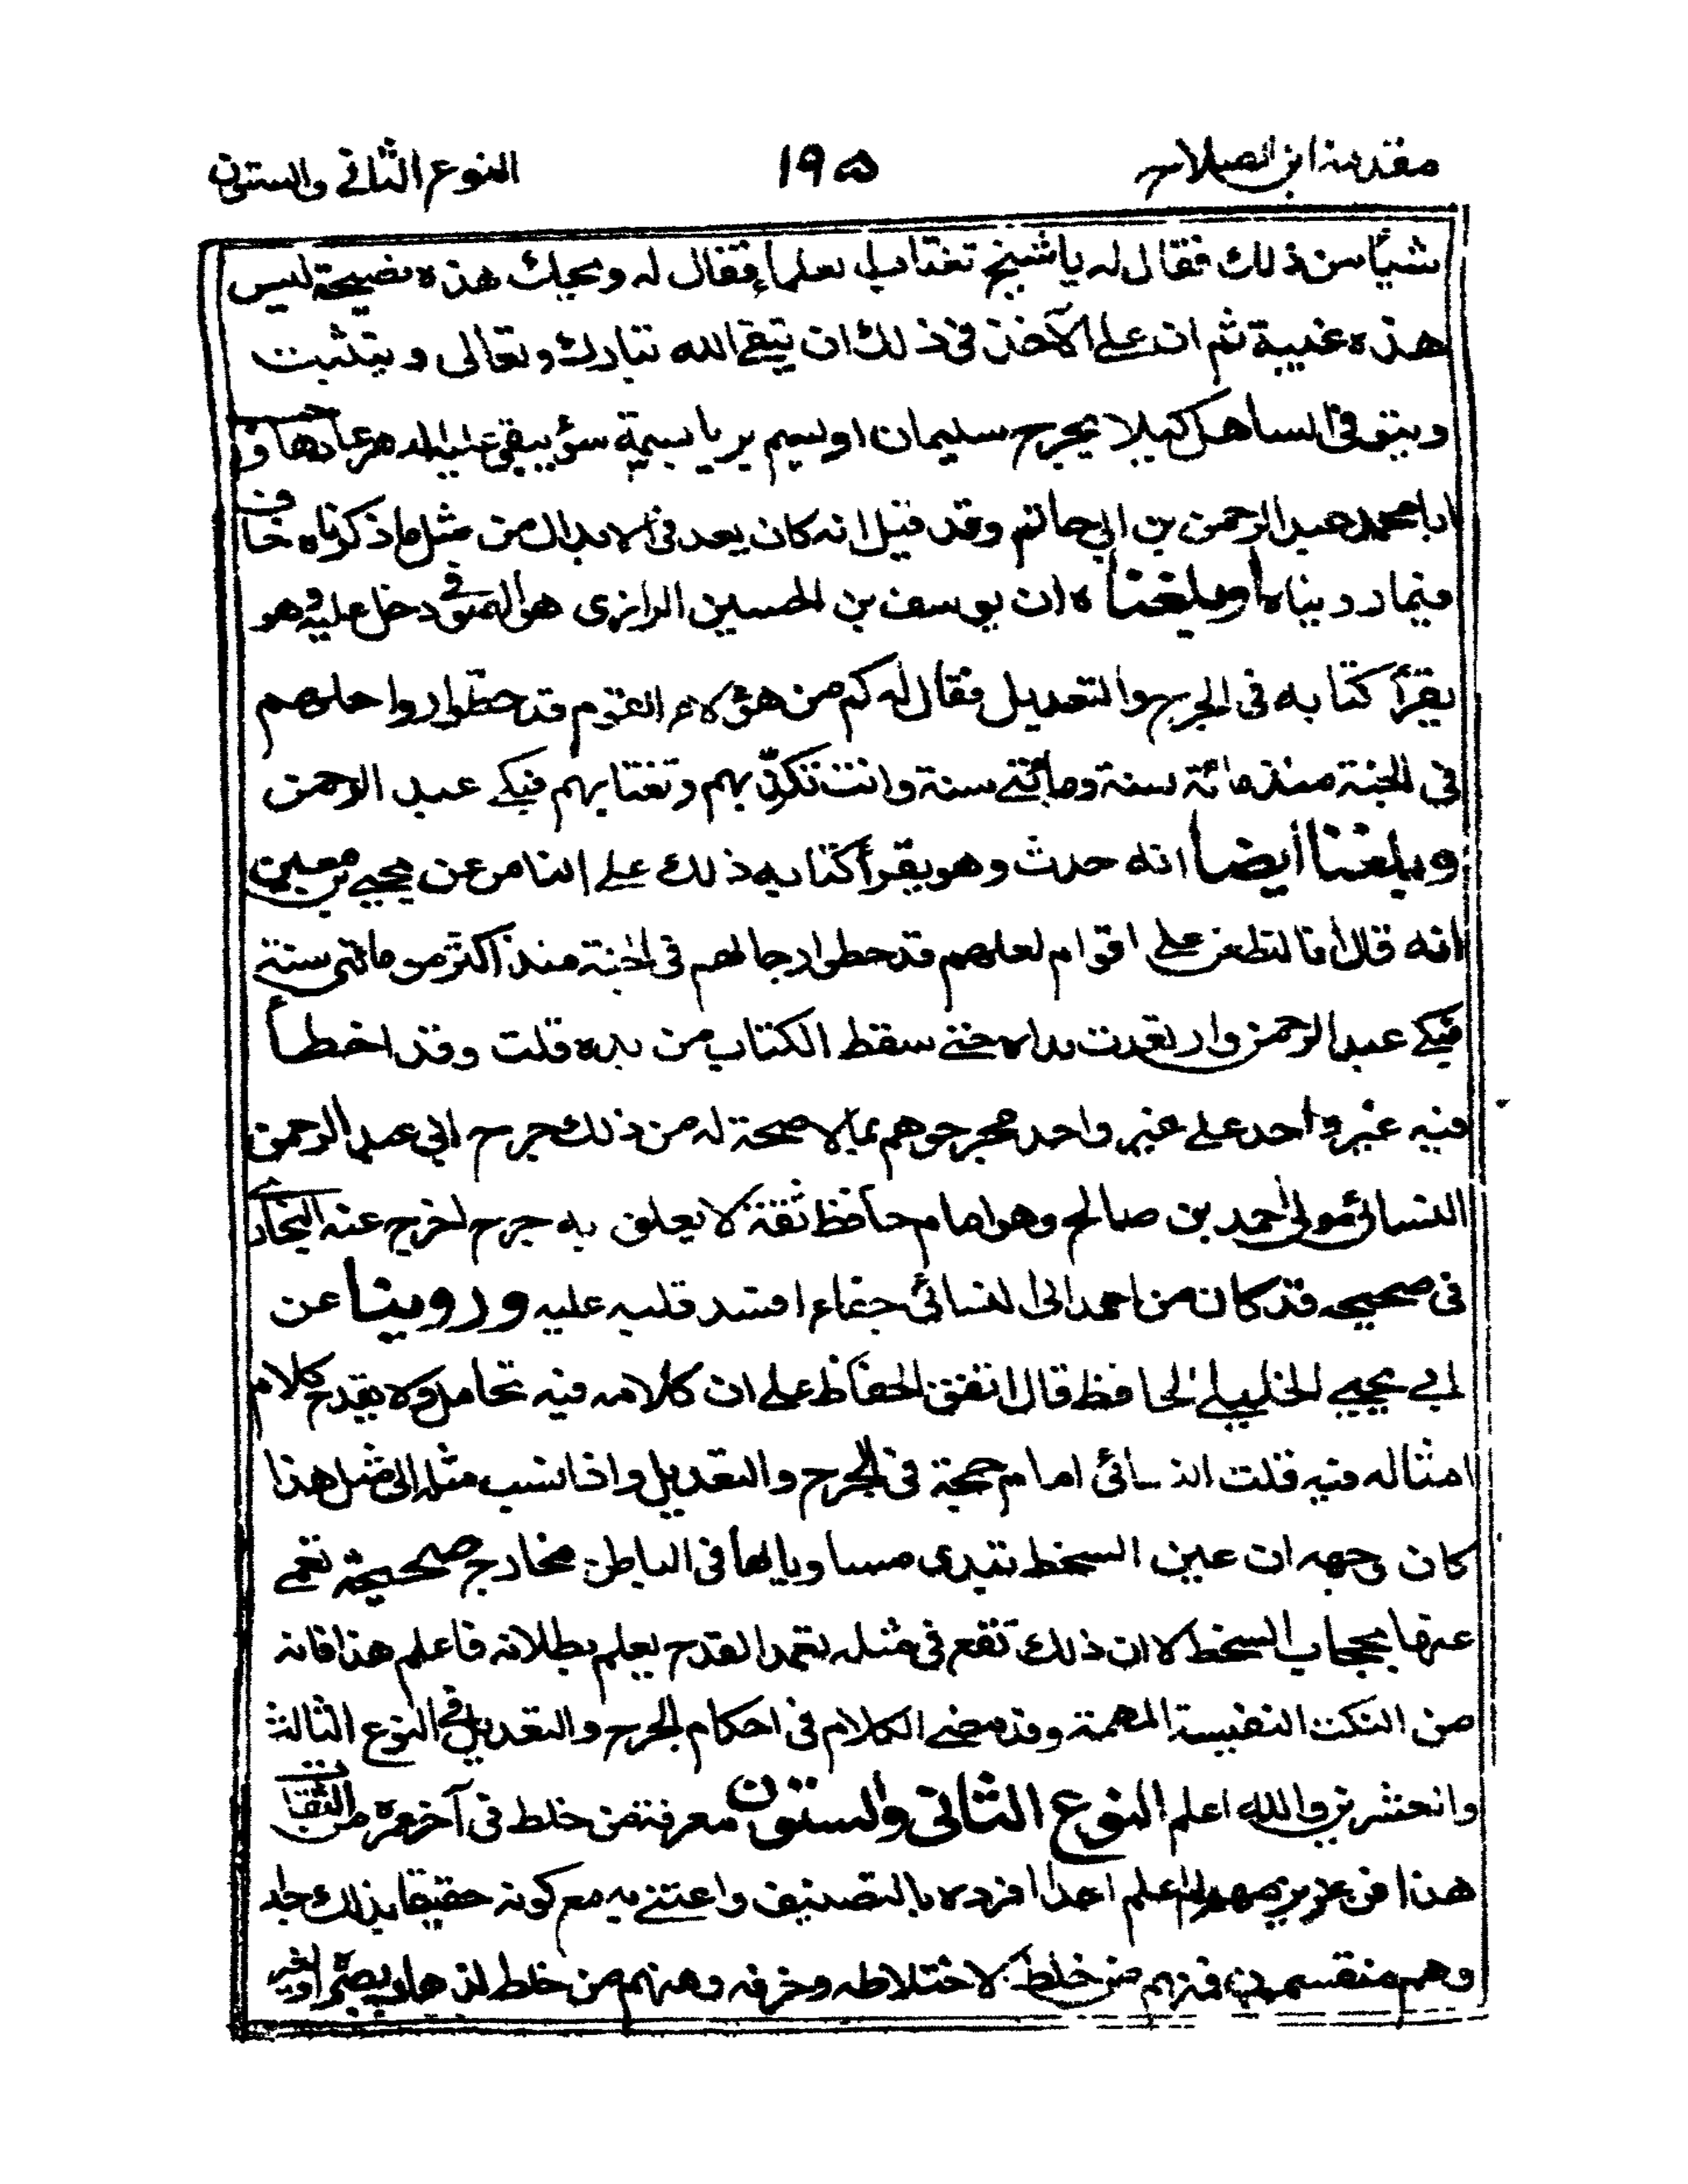 مقدمة ابن الصلاح ١٩٥ النوع الثاني والستون
شيأ من ذلك فقال له يا شيخ تغتاب العلماء فقال له ويحك هذه نصيحة ليس
هذه غيبة ثم ان على الآخذ في ذلك ان يتقي الله تبارك وتعالى ويتثبت
ويتوقى التساهل كيلا يجرح سليمان او يسم بريا بسمة سوء يبقى عليه الدهر عارها و
ابا محمد عبد الرحمن بن ابي حاتم وقد قيل انه كان يعد في الابدال من مثل ما ذكرناه خاف
فيما رويناه او بلغناه ان يوسف بن الحسين الرازي هو الصوفي دخل عليه وهو
يقرأ كتابه في الجرح والتعديل فقال له كم من هؤلاء القوم قد حطوا رواحلهم
في الجنة منذ مائة سنة ومائتي سنة وانت تذكرهم وتغتابهم فبكى عبد الرحمن
وبلغنا أيضا انه حدث وهو يقرأ كتابه ذلك على الناس عن يحيى بن معين
انه قال انا لنطعن على اقوام لعلهم قد حطوا رحالهم في الجنة منذ اكثر من مائتي سنة
فبكى عبد الرحمن وارتعدت يداه حتى سقط الكتاب من يده قلت وقد اخطأ
فيه غير واحد على غير واحد فجرحوهم بما لا صحة له من ذلك جرح ابي عبد الرحمن
النسائي احمد بن صالح وهو امام حافظ ثقة لا يعلق به جرح اخرج عنه البخاري
في صحيحه قد كان من احمد الى النسائي جفاء افسد قلبه عليه وروينا عن
ابي يحيى الخليلي الحافظ قال اتفق الحفاظ على ان كلامه فيه تحامل ولا يقدح كلام
امثاله فيه قلت النسائي امام حجة في الجرح والتعديل واذا نسب مثله الى مثل هذا
كان وجهه ان عين السخط تبدي مساويا لها في الباطن مخارج صحيحة تعمى
عنها بحجاب السخط لا ان ذلك تقع في مثله تعمد القدح يعلم بطلانه فاعلم هذا فانه
من النكت النفيسة المهمة وقد مضى الكلام في احكام الجرح والتعديل في النوع الثالث
والعشرين والله اعلم النوع الثاني والستون معرفة من خلط في آخر عمره من الثقات
هذا فن عزيز مهم لم اعلم احدا افرده بالتصنيف واعتنى به مع كونه حقيقا بذلك جدا
وهم منقسمون فمنهم من خلط لاختلاطه وخرفه ومنهم من خلط لذهاب بصره او لغير